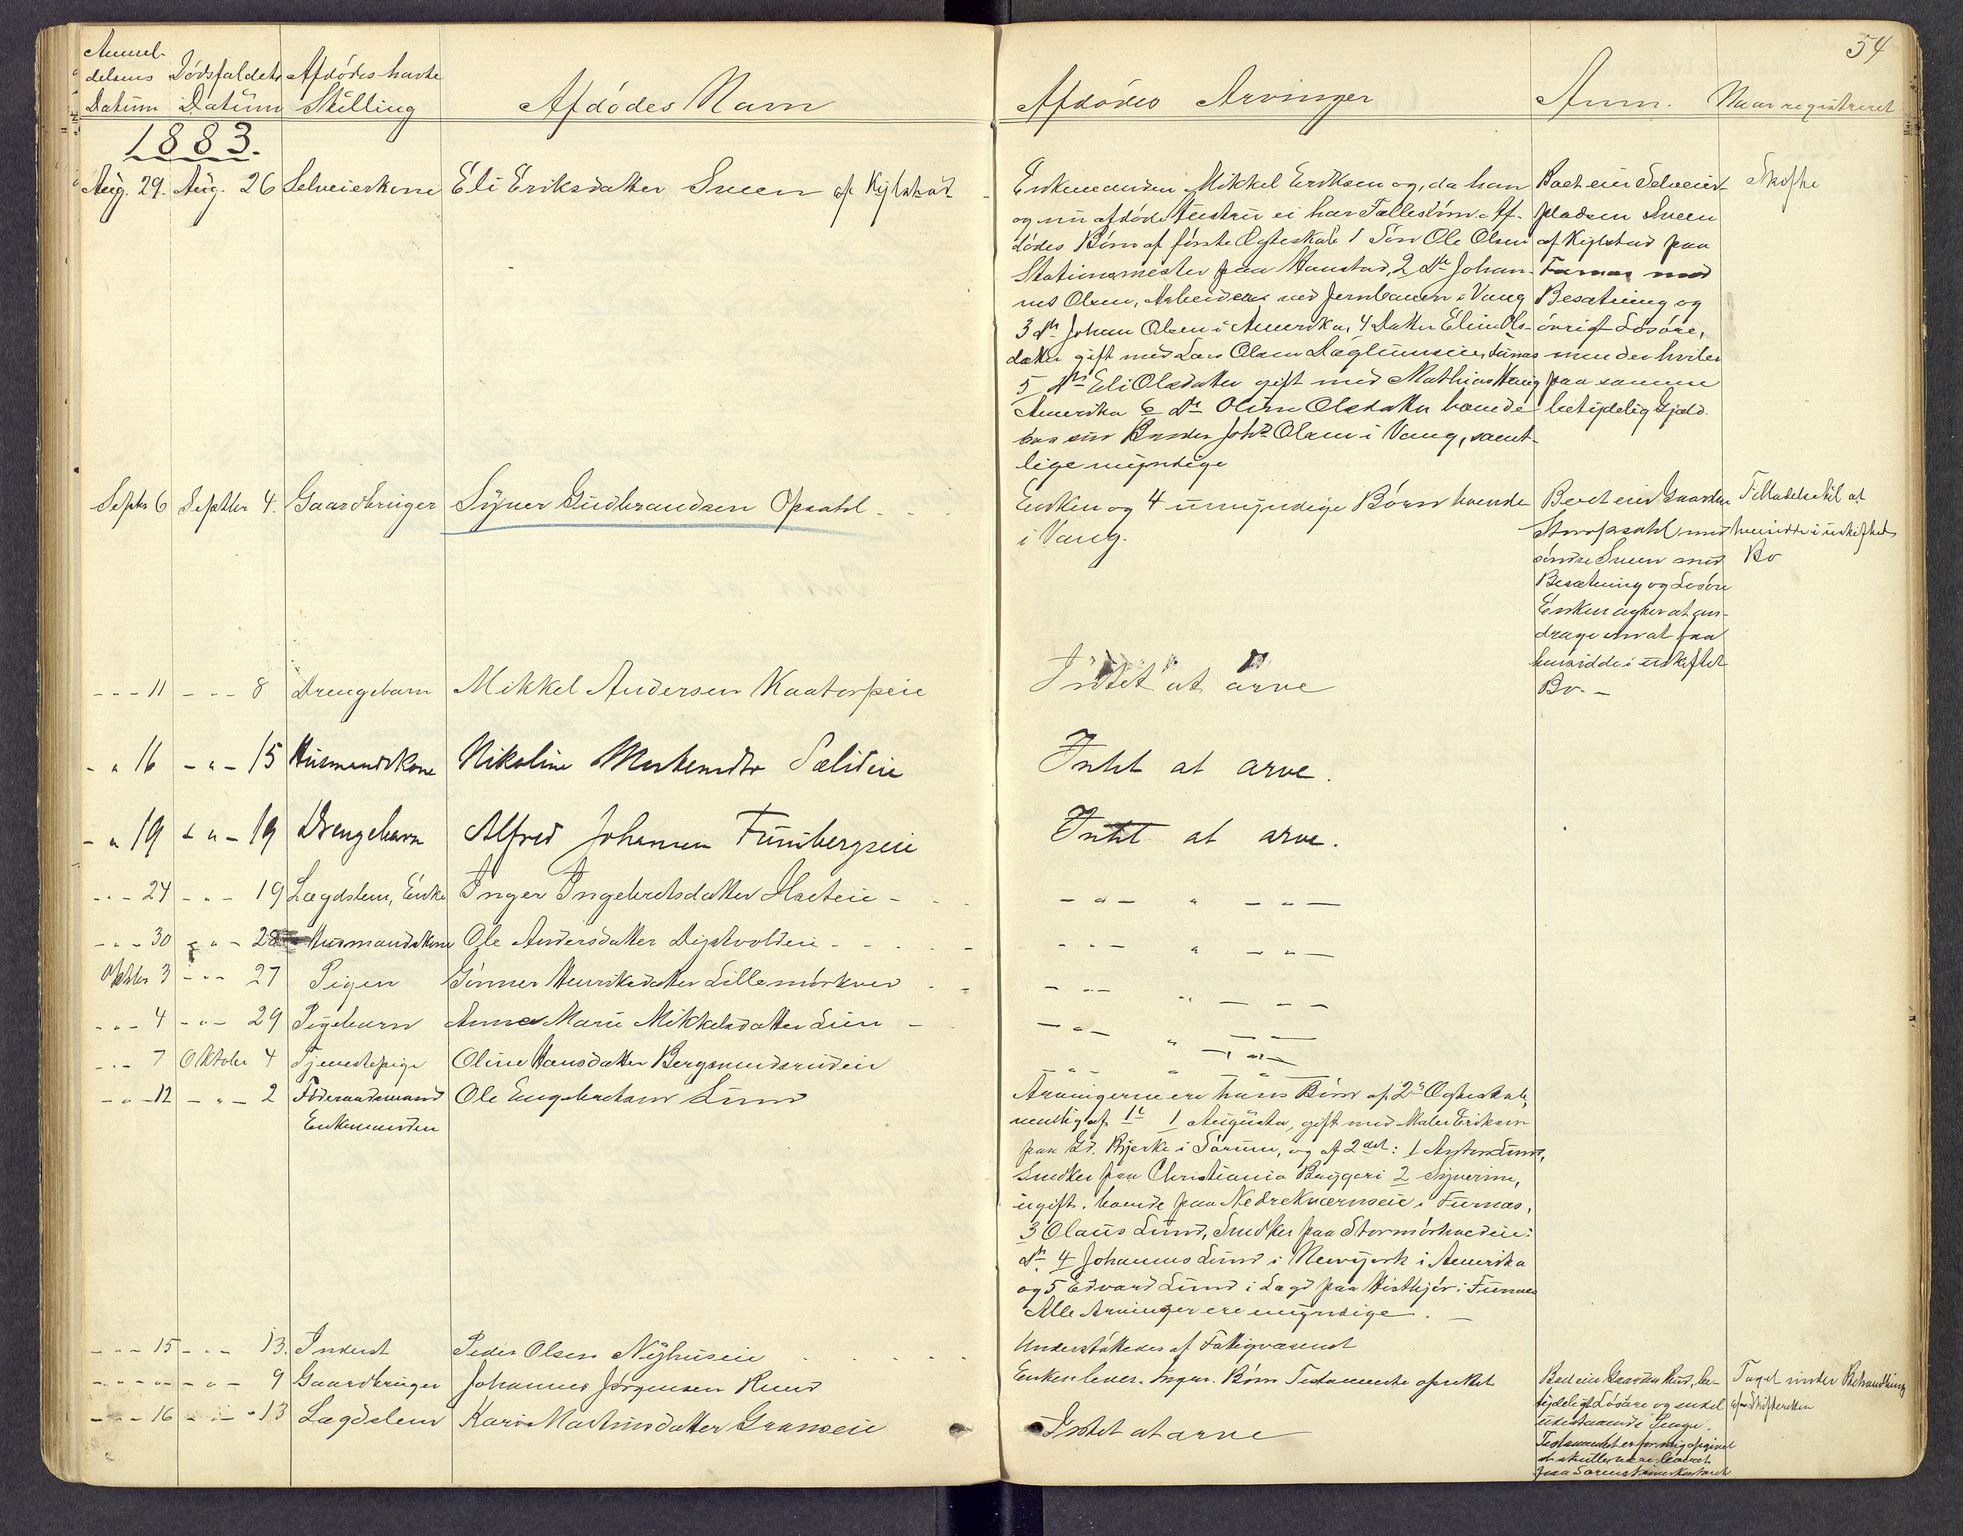 54
Anmeldelsens Datum
Dødsfaldets Datum
Afdødes havte Stilling
Afdødes Navn
Afdødes Arvinger
Anm.
Naar registreret
1883.
Aug. 29. Aug. 26 Selveierkone Eli Eriksdatter Sveen af Kylstad
Enkemanden Mikkel Eriksen og, da han
og nu afdøde Hustru ei har Fællesbørn, Af-
dødes Børn af første Ægteskab 1 Søn Ole Olsen
Stationsmester paa Hamstad, 2 do Johan-
nes Olsen, Arbeider ved Jernbanen i Vang
3 do Johan Olsen i Amerika, 4 Datter Elin Ols-
datter gift med Lars Olsen Daglumseie, Furnæs
5 do Eli Olsdatter gift med Mathias Haug
Amerika 6 do Oline Olsdatter boende
hos sin Broder Johs Olsen i Vang, samt-
lige myndige
Boet eier Selveier-
pladsen Sveen
af Kylstad paa
Furnæs med
Besætning og
øvrigt Løsøre,
men der hviler
paa samme
betydelig Gjæld.
Skifte
Septbr 6 Septbr 4. Gaardbruger Syver Gudbrandsen Opsahl
Enken og 4 umyndige Børn boende
i Vang.
Boet eier Gaarden
Storopsahl med
søndre Sveen med
Besætning og Løsøre
Enken agter at an-
drage om at faa
hensidde i uskiftet
Bo. -
Tilladelse til at
hensidde i uskiftet
Bo
- - - 11 - - - 8 Drengebarn Mikkel Andersen Kaatorpeie
Intet at arve
- " 16 - " - 15 Husmandskone Nikoline Mortensdtr Sælideie
Intet at arve.
- " 19 - " - 19 Drengebarn Alfred Johansen Furubergseie
Intet at arve.
- " - 24 - " - 19 Lægdslem, Enke Inger Ingebretsdatter Hseteie -
- " - " - " -
- " - 30 - " - 28 Husmandskone Ole Andersdatter Dystvoldeie -
- " - " - " -
Oktober 3 - " - 27 Pigen Gunner Henriksdatter Lillemørkved
- " - " - - -
- " - 4 - " - 29 Pigebarn Anne Marie Mikkelsdatter Lien -
- " - " - " -
- " - 7 Oktober 4 Tjenestepige Oline Hansdatter Bergsmundsrudeie
- " - 12 - " - 2 Føderaadsmand Ole Engebretsen Lund
Enkemanden
Arvingerne ere hans Børn af 2de Ægteskab,
nemlig af 1t 1 Augusta, gift med Maler Eriksen
paa Gd. Bjerke i Sørum, og af 2det: 1 Anton Lund,
Snedker paa Christiania Byggeri 2 Syverine,
ugift, boende paa Nedre Kværnseie i Furnæs,
3 Olaus Lund, Snedker paa Stormørkvedeie:
do 4 Johannes Lund i Newyork i Amerika
og 5 Edvard Lund i Lægd paa Histhjør i Furnæs
Alle Arvinger ere myndige. -
- " - 15 - " - 13. Inderst Peder Olsen Nyhuseie
Understøttedes af Fattigvæsenet
- " - " - - " - 9 Gaardbruger Johannes Jørgensen Ruud
Enken lever. Ingen Børn Testamente oprettet
Boet eier Gaarden Ruud, be-
tydeligt Løsøre og endel
udestaaende Penge.
Testamentet er for mig opgivet
at skulle være
Taget under Behandling
af Skifteretten
- " - 16 - " - 13 Lægdslem Kari Martinusdatter Granseie
Intet at arve